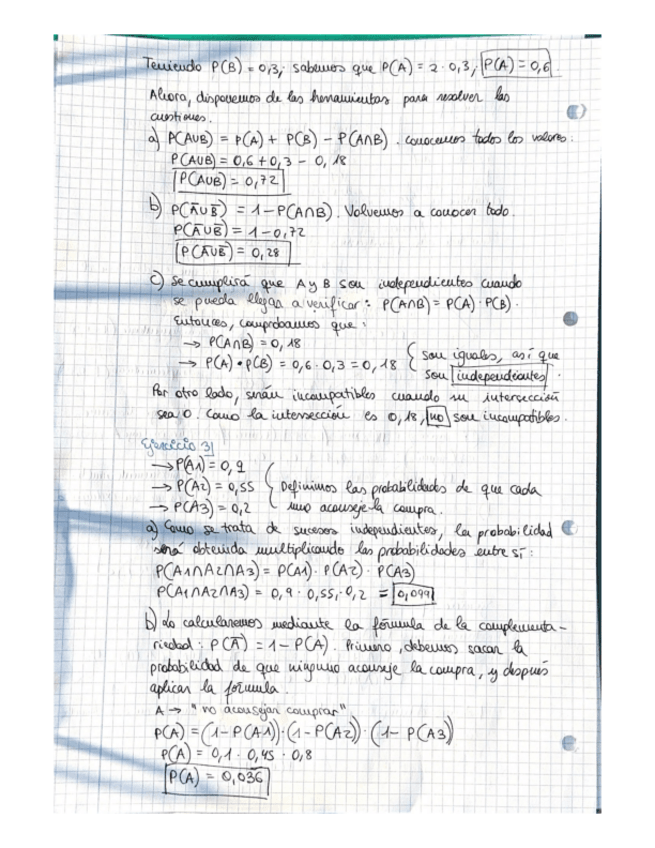 Teniendo P(B) = 0,3; sabemos que P(A) = 2 · 0,3; P(A) = 0,6
Ahora, disponemos de las herramientas para resolver las
cuestiones.
a) P(A∪B) = P(A) + P(B) - P(A∩B). conocemos todos los valores.
P(A∪B) = 0,6 + 0,3 - 0,18
P(A∪B) = 0,72
b) P(A̅∪B̅) = 1 - P(A∩B). Volvemos a conocer todo.
P(A̅∪B̅) = 1 - 0,72
P(A̅∪B̅) = 0,28
c) Se cumplirá que A y B son independientes cuando
se pueda llegar a verificar: P(A∩B) = P(A) · P(B).
Entonces, comprobamos que:
→ P(A∩B) = 0,18
→ P(A) · P(B) = 0,6 · 0,3 = 0,18 { son iguales, así que
son independientes.
Por otro lado, serán incompatibles cuando su intersección
sea 0. Como la intersección es 0,18, no son incompatibles.
Ejercicio 3|
→ P(A1) = 0,9
→ P(A2) = 0,55 { Definimos las probabilidades de que cada
→ P(A3) = 0,2 uno aconseje la compra.
a) Como se trata de sucesos independientes, la probabilidad
será obtenida multiplicando las probabilidades entre sí:
P(A1∩A2∩A3) = P(A1) · P(A2) · P(A3)
P(A1∩A2∩A3) = 0,9 · 0,55 · 0,2 = 0,099
b) Lo calcularemos mediante la fórmula de la complementa-
riedad: P(A̅) = 1 - P(A). Primero, debemos sacar la
probabilidad de que ninguno aconseje la compra, y después
aplicar la fórmula.
A → "no aconsejan comprar"
P(A) = (1 - P(A1)) · (1 - P(A2)) · (1 - P(A3))
P(A) = 0,1 · 0,45 · 0,8
P(A) = 0,036